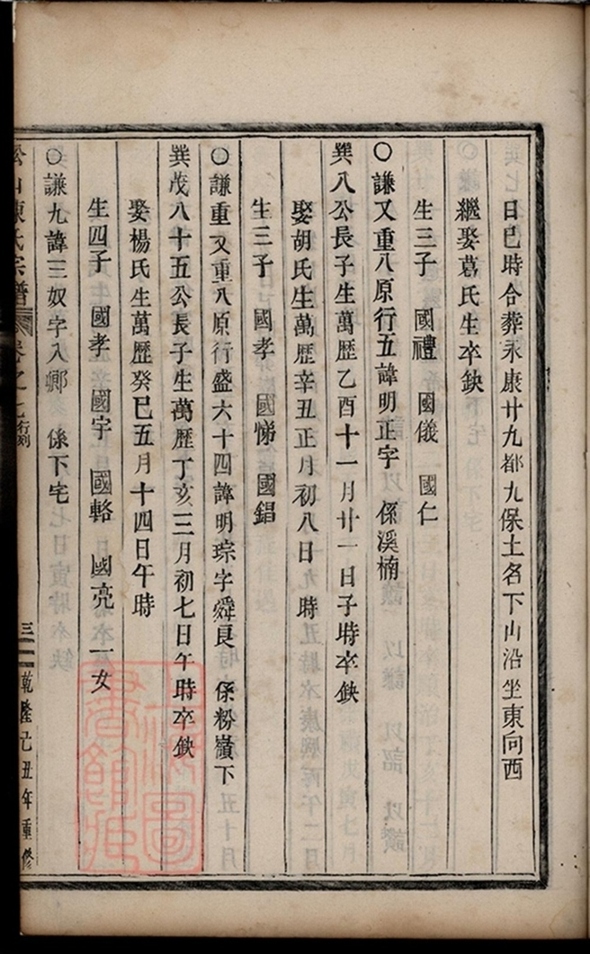 日巳時合葬永康廿九都九保土名下山沿坐東向西
繼娶葛氏生卒缺
生三子 國禮 國儀 國仁
〇謙又重八原行五諱明正字 係溪楠
巽八公長子生萬歷乙酉十一月廿一日子時卒缺
娶胡氏生萬歷辛丑正月初八日 時
生三子 國孝 國悌 國錩
〇謙重又重八原行盛六十四諱明琮字舜良 係粉嶺下
巽茂八十五公長子生萬歷丁亥三月初七日午時卒缺
娶楊氏生萬歷癸巳五月十四日午時
生四子 國孝 國宇 國輅 國亮 一女
〇謙九諱三奴字入鄉 係下宅
山陳氏宗譜 卷之七 行列 三 乾隆己丑年重修